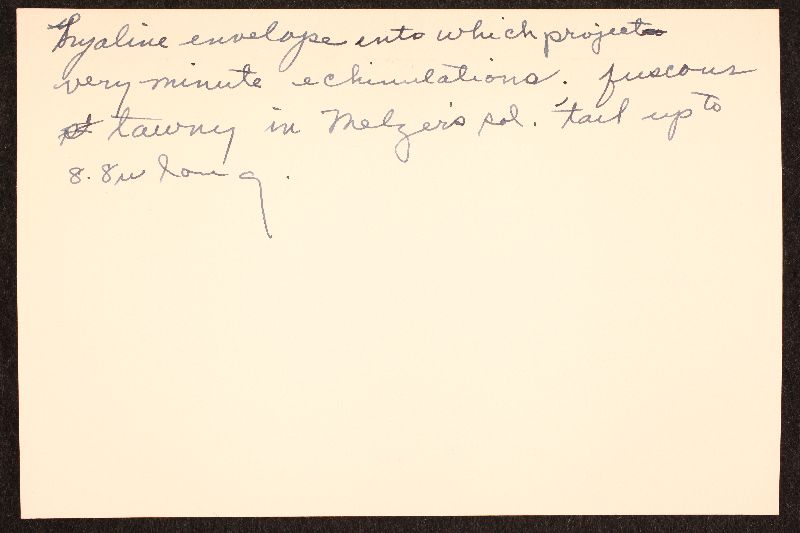 Hyaline envelope into which project
very minute echinulations. fuscous
tawny in Melzer's sol. tail up to
8.8u long.